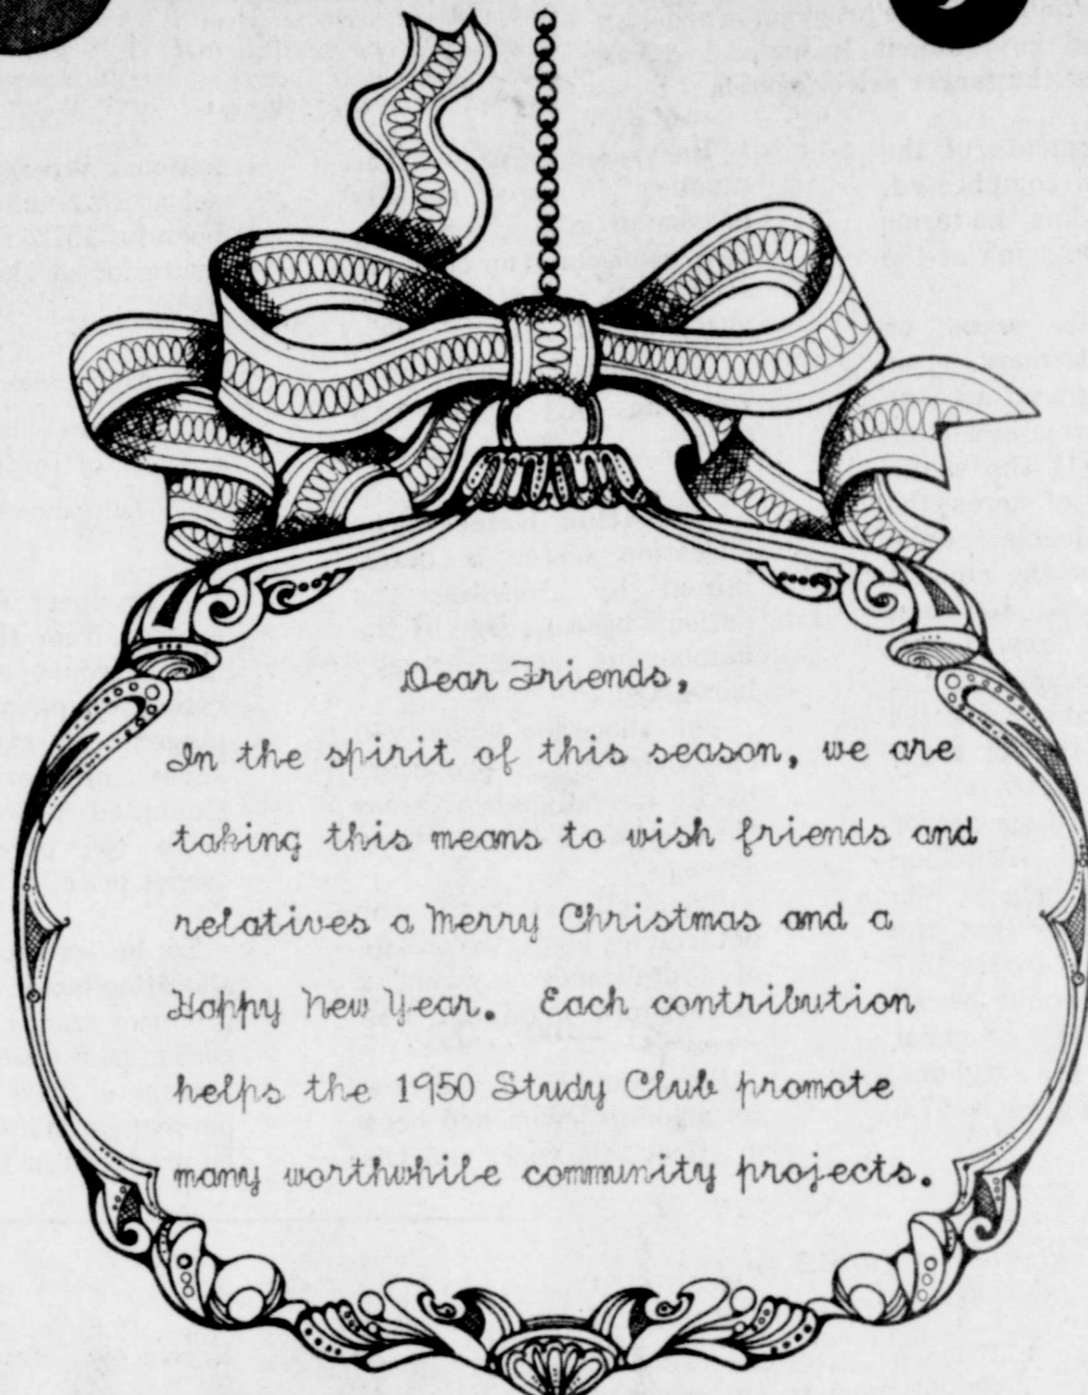 Dear Friends,
In the spirit of this season, we are
taking this means to wish friends and
relatives a Merry Christmas and a
Happy New Year. Each contribution
helps the 1950 Study Club promote
many worthwhile community projects.